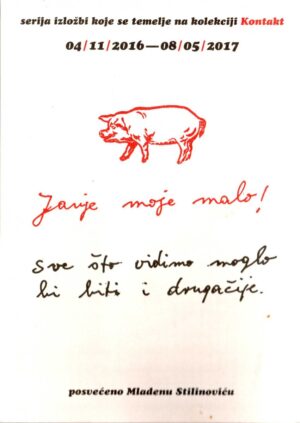 serija izložbi koje se temelje na kolekciji Kontakt
04/11/2016—08/05/2017
Janje moje malo!
sve što vidimo moglo
bi biti i drugačije.
posvećeno Mladenu Stilinoviću